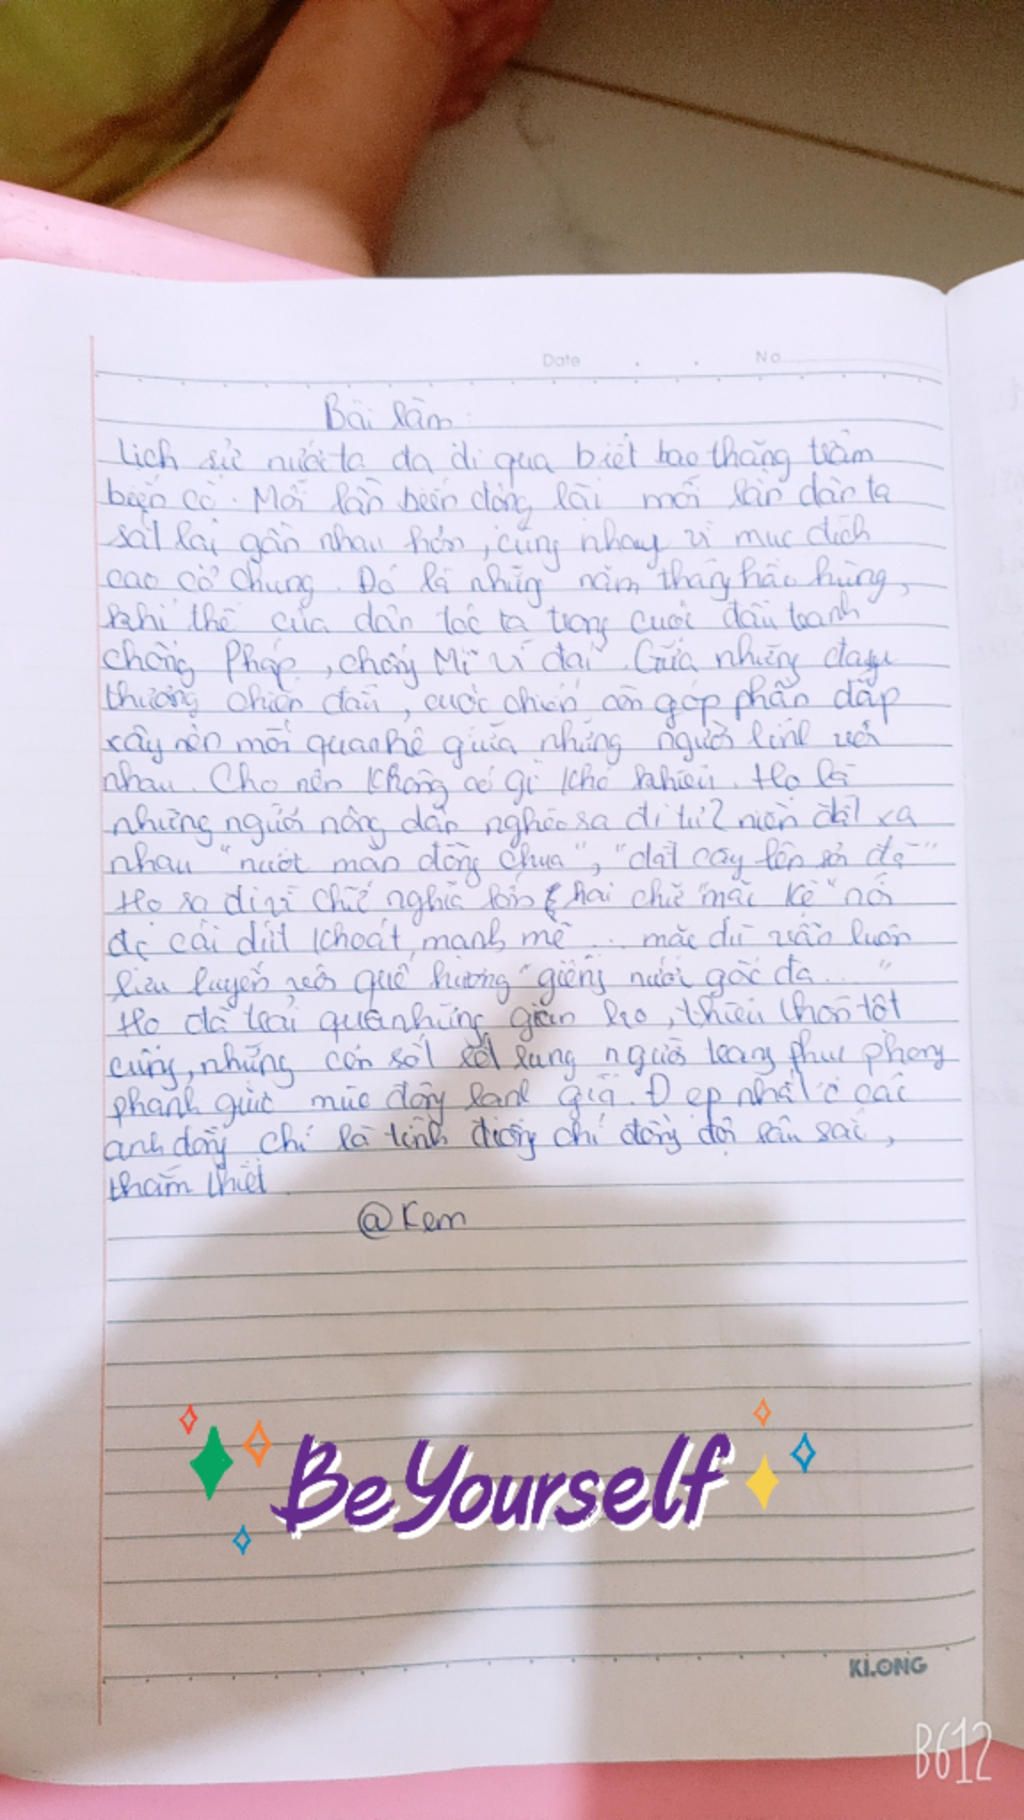 Date No
Bài làm:
Lịch sử nước ta đã đi qua biết bao thăng trầm
biến cố. Mỗi lần biến động lại mỗi lần dân ta
sát lại gần nhau hơn, cùng nhau vì mục đích
cao cả chung. Đó là những năm tháng hào hùng,
khí thế của dân tộc ta trong cuộc đấu tranh
chống Pháp, chống Mĩ vĩ đại. Giữa những đau
thương chiến đấu, cuộc chiến còn góp phần đắp
xây nên mối quan hệ giữa những người lính với
nhau. Cho nên không có gì khó hiểu. Họ là
những người nông dân nghèo sa đi từ 2 miền đất xa
nhau "nước mặn đồng chua", "đất cày lên sỏi đá"
Họ sa đi vì chữ nghĩa lớn hai chữ "mặc kệ" nói
đc cái dứt khoát, mạnh mẽ ... mặc dù vẫn luôn
lưu luyến với quê hương "giếng nước gốc đa..."
Họ đã trải qua những gian lao, thiếu thốn tột
cùng, những cơn sốt rét run người trang phục phong
phanh giữa mùa đông lạnh giá. Đẹp nhất ở các
anh đồng chí là tình đồng chí đồng đội sâu sắc,
thắm thiết
@Kem
Be Yourself
KLONG
B612